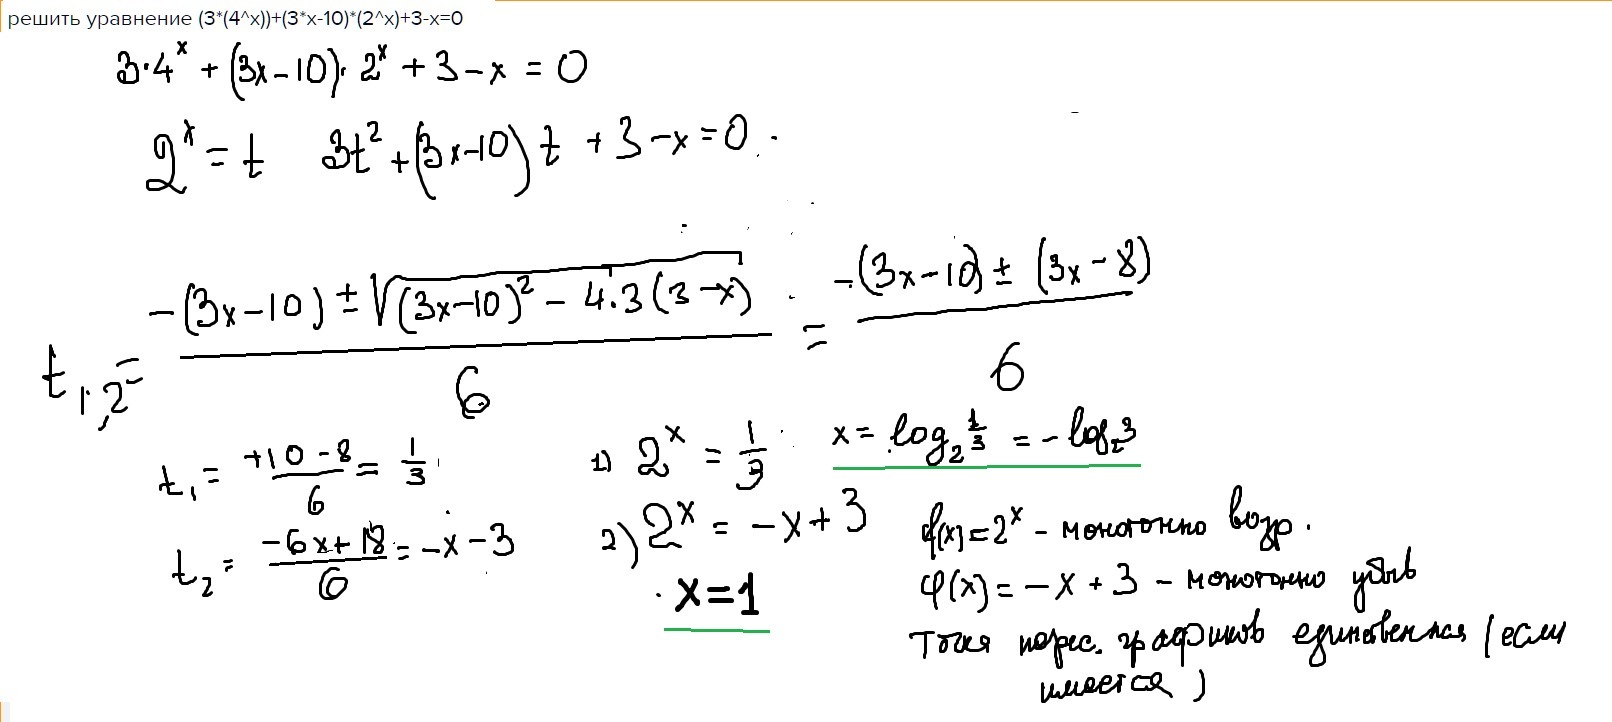 решить уравнение (3*(4^x))+(3*x-10)*(2^x)+3-x=0
3·4^x + (3x-10)·2^x + 3-x = 0
2^x = t 3t^2 + (3x-10)t + 3-x = 0.
t_{1,2} = \frac{-(3x-10) ± \sqrt{(3x-10)^2 - 4·3(3-x)}}{6} = \frac{-(3x-10) ± (3x-8)}{6}
t_1 = \frac{+10-8}{6} = \frac{1}{3} 1) 2^x = \frac{1}{3} x = log_2 \frac{1}{3} = -log_2 3
t_2 = \frac{-6x+18}{6} = -x-3 2) 2^x = -x+3 f(x) = 2^x - монотонно возр.
x=1 φ(x) = -x+3 - монотонно убыв
Точка перес. графиков единственная (если
имеется)